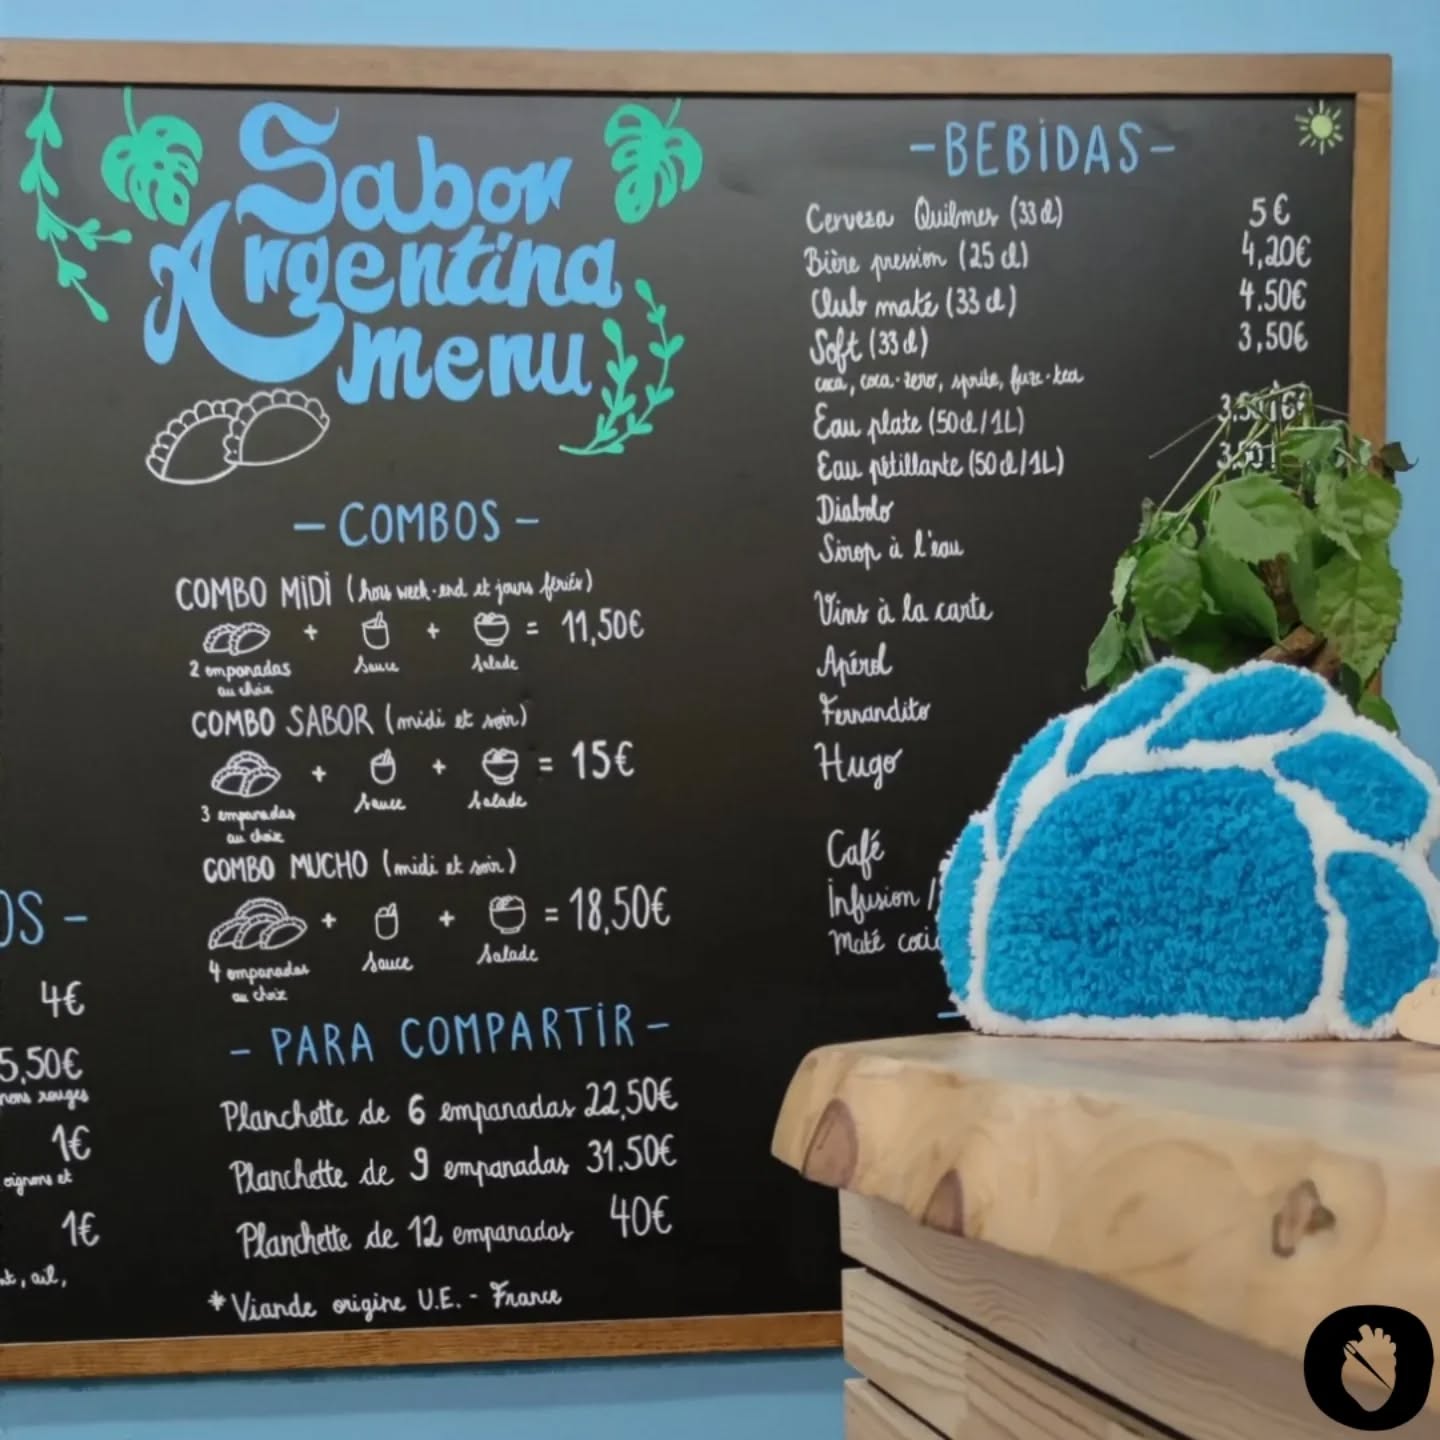 Sabor
Argentina
menu
- COMBOS -
COMBO MIDI (hors week-end et jours fériés)
+ + = 11,50€
2 empanadas Sauce Salade
au choix
COMBO SABOR (midi et soir)
+ + = 15€
3 empanadas Sauce Salade
au choix
COMBO MUCHO (midi et soir)
+ + = 18,50€
4 empanadas Sauce Salade
au choix
- PARA COMPARTIR -
Planchette de 6 empanadas 22,50€
Planchette de 9 empanadas 31.50€
Planchette de 12 empanadas 40€
* Viande origine U.E. - France
OS -
4€
5,50€
rouges
1€
oignons et
1€
ail,
- BEBIDAS -
Cerveza Quilmes (33cl) 5€
Bière pression (25cl) 4,20€
Club maté (33cl) 4.50€
Soft (33cl) 3,50€
coca, coca-zero, sprite, fuze-tea
Eau plate (50cl/1L)
Eau pétillante (50cl/1L)
Diabolo
Sirop à l'eau
Vins à la carte
Apérol
Fernandito
Hugo
Café
Infusion /
Maté